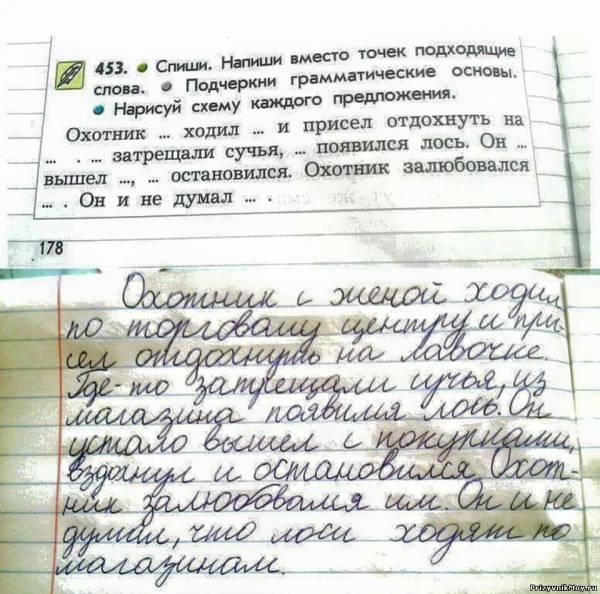 453. Спиши. Напиши вместо точек подходящие
слова. Подчеркни грамматические основы.
Нарисуй схему каждого предложения.
Охотник ... ходил ... и присел отдохнуть на
... . ... затрещали сучья, ... появился лось. Он ...
вышел ..., ... остановился. Охотник залюбовался
... . Он и не думал ... .
178
Охотник с женой ходил
по торговому центру и при-
сел отдохнуть на лавочке.
Где-то затрещали сучья, из
магазина появился лось. Он
устало вышел с покупками,
вздохнул и остановился. Охот-
ник залюбовался им. Он и не
думал, что лоси ходят по
магазинам.
PrizyvnikMoy.ru